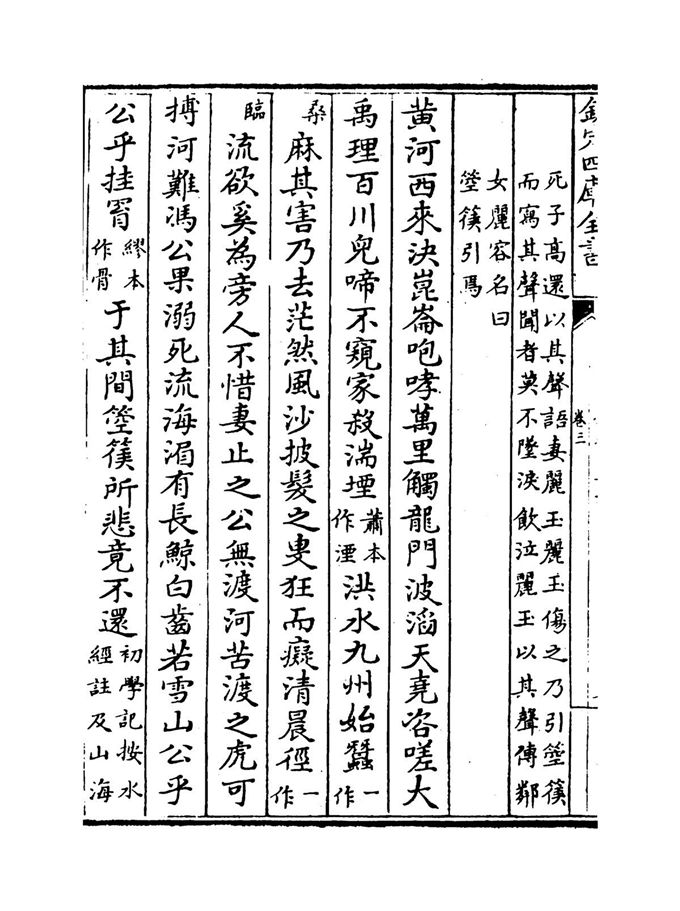 欽定四庫全書
卷三
死子高還以其聲語妻麗玉麗玉傷之乃引箜篌
而寫其聲聞者莫不墜淚飲泣麗玉以其聲傳鄰
女麗容名曰
箜篌引焉
黄河西來決崑崙咆哮萬里觸龍門波滔天堯咨嗟大
禹理百川兒啼不窺家殺湍堙蕭本作湮洪水九州始蠶一作
桑麻其害乃去茫然風沙披髮之叟狂而癡清晨徑一作
臨流欲奚為旁人不惜妻止之公無渡河苦渡之虎可
搏河難馮公果溺死流海湄有長鯨白齒若雪山公乎
公乎挂罥繆本作骨于其間箜篌所悲竟不還初學記按水經註及山海